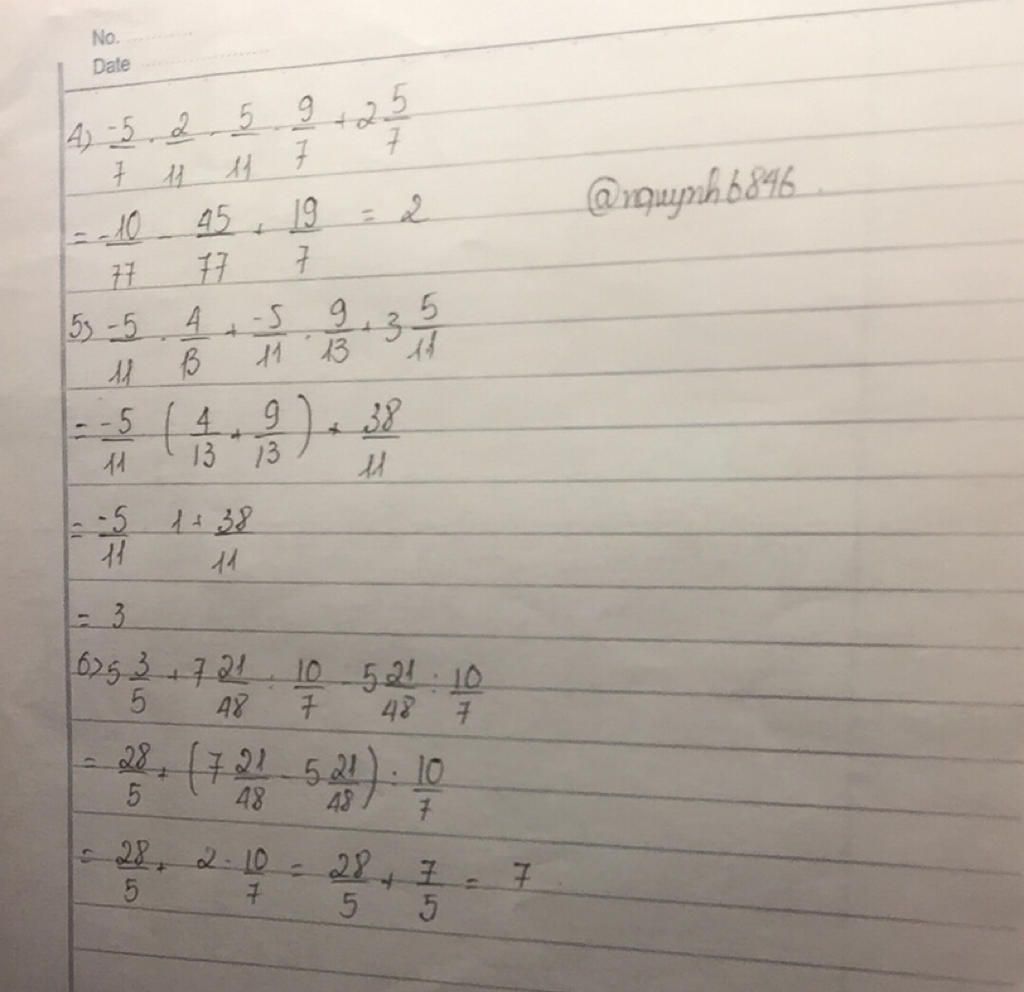 No.
Date
4) -5/7 . 2/11 - 5/11 . 9/7 + 2 5/7
= -10/77 - 45/77 + 19/7 = 2
@nquynh6846
5) -5/11 . 4/13 + -5/11 . 9/13 + 3 5/11
= -5/11 (4/13 + 9/13) + 38/11
= -5/11 1 + 38/11
= 3
6) 5 3/5 + 7 21/48 : 10/7 - 5 21/48 : 10/7
= 28/5 + (7 21/48 - 5 21/48) : 10/7
= 28/5 + 2 : 10/7 = 28/5 + 7/5 = 7